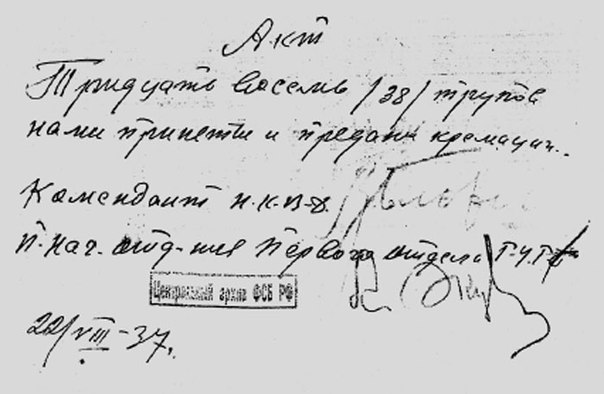 Акт
Тридцать восемь /38/ трупов
нами приняти и предани кремации.
Комендант Н.К.В.Д.
П. Нач. отд-ния Первого отдела Г.У.Г.Б
Центральный архив ФСБ РФ
22/VIII-37.